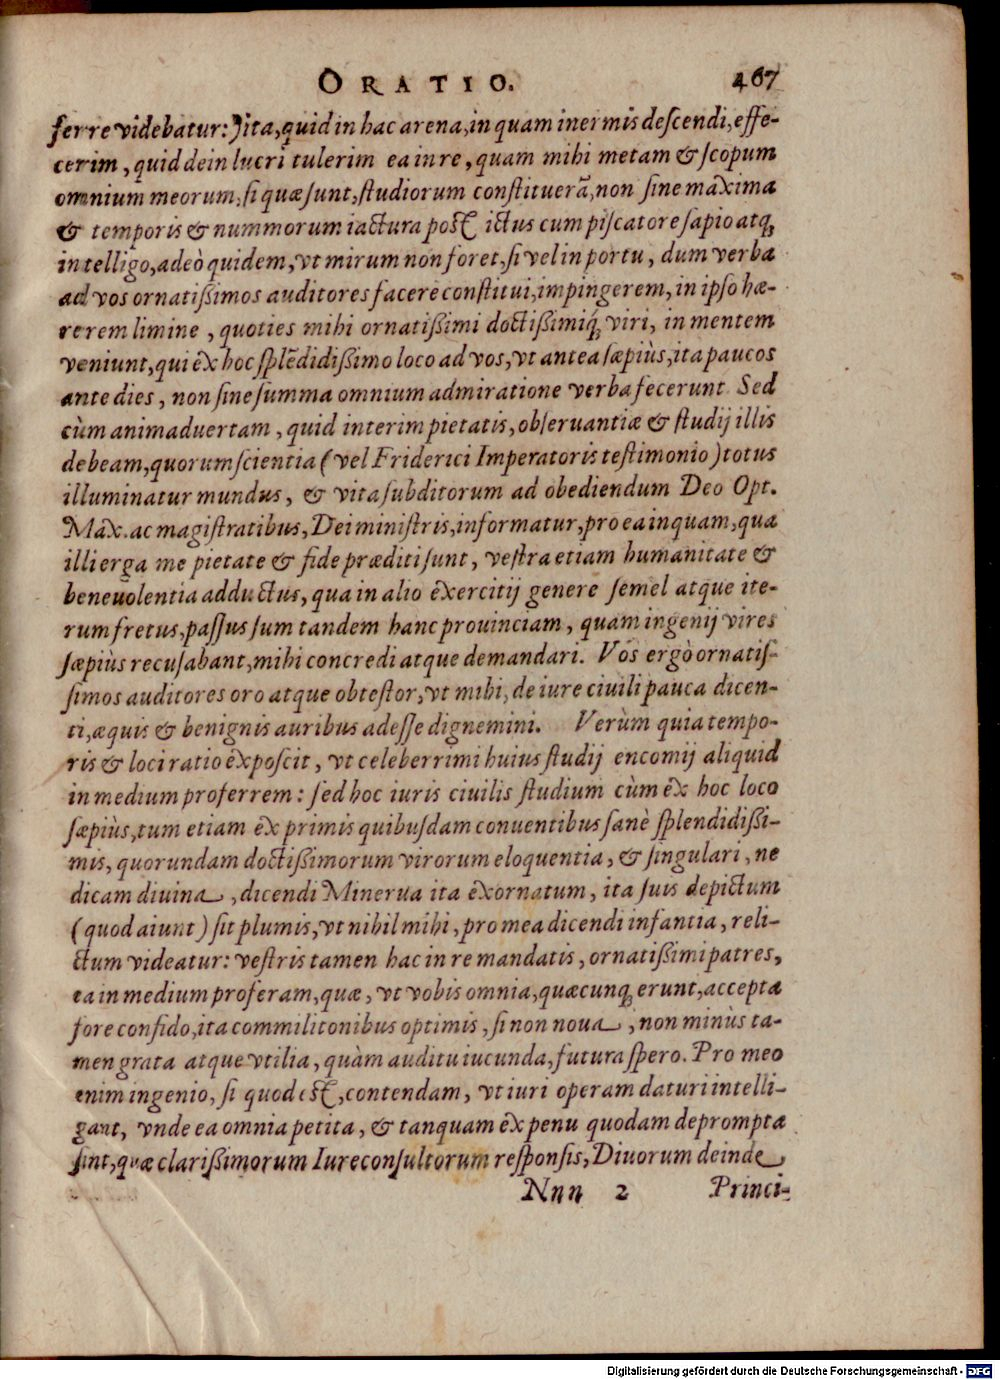 ORATIO. 467
ferre videbatur:) ita, quid in hac arena, in quam inermis descendi, effe-
cerim, quid dein lucri tulerim ea in re, quam mihi metam & scopum
omnium meorum, si quæ sunt, studiorum constituerã, non sine maxima
& temporis & nummorum iactura post ictus cum piscatore sapio atq;
intelligo, adeò quidem, vt mirum non foret, si vel in portu, dum verba
ad vos ornatißimos auditores facere constitui, impingerem, in ipso hæ-
rerem limine, quoties mihi ornatißimi doctißimiq́; viri, in mentem
veniunt, qui ex hoc splẽdidißimo loco ad vos, vt antea sæpiùs, ita paucos
ante dies, non sine summa omnium admiratione verba fecerunt. Sed
cùm animaduertam, quid interim pietatis, obseruantiæ & studij illis
debeam, quorum scientia (vel Friderici Imperatoris testimonio) totus
illuminatur mundus, & vita subditorum ad obediendum Deo Opt.
Max. ac magistratibus, Dei ministris, informatur, pro ea inquam, qua
illi erga me pietate & fide præditi sunt, vestra etiam humanitate &
beneuolentia adductus, qua in alio exercitij genere semel atque ite-
rum fretus, passus sum tandem hanc prouinciam, quam ingenij vires
sæpiùs recusabant, mihi concredi atque demandari. Vos ergò ornatis-
simos auditores oro atque obtestor, vt mihi, de iure ciuili pauca dicen-
ti, æquis & benignis auribus adesse dignemini. Verùm quia tempo-
ris & loci ratio exposcit, vt celeberrimi huius studij encomij aliquid
in medium proferrem: sed hoc iuris ciuilis studium cùm ex hoc loco
sæpiùs, tum etiam ex primis quibusdam conuentibus sanè splendidißi-
mis, quorundam doctißimorum virorum eloquentia, & singulari, ne
dicam diuina, dicendi Minerua ita exornatum, ita suis depictum
(quod aiunt) sit plumis, vt nihil mihi, pro mea dicendi infantia, reli-
ctum videatur: vestris tamen hac in re mandatis, ornatißimi patres,
ea in medium proferam, quæ, vt vobis omnia, quæcunq; erunt, accepta
fore confido, ita commilitonibus optimis, si non noua, non minùs ta-
men grata atque vtilia, quàm auditu iucunda, futura spero. Pro meo
enim ingenio, si quod est, contendam, vt iuri operam daturi intelli-
gant, vnde ea omnia petita, & tanquam ex penu quodam deprompta
sint, quæ clarißimorum Iureconsultorum responsis, Diuorum deinde
Nnn 2 Princi-
Digitalisierung gefördert durch die Deutsche Forschungsgemeinschaft - DFG